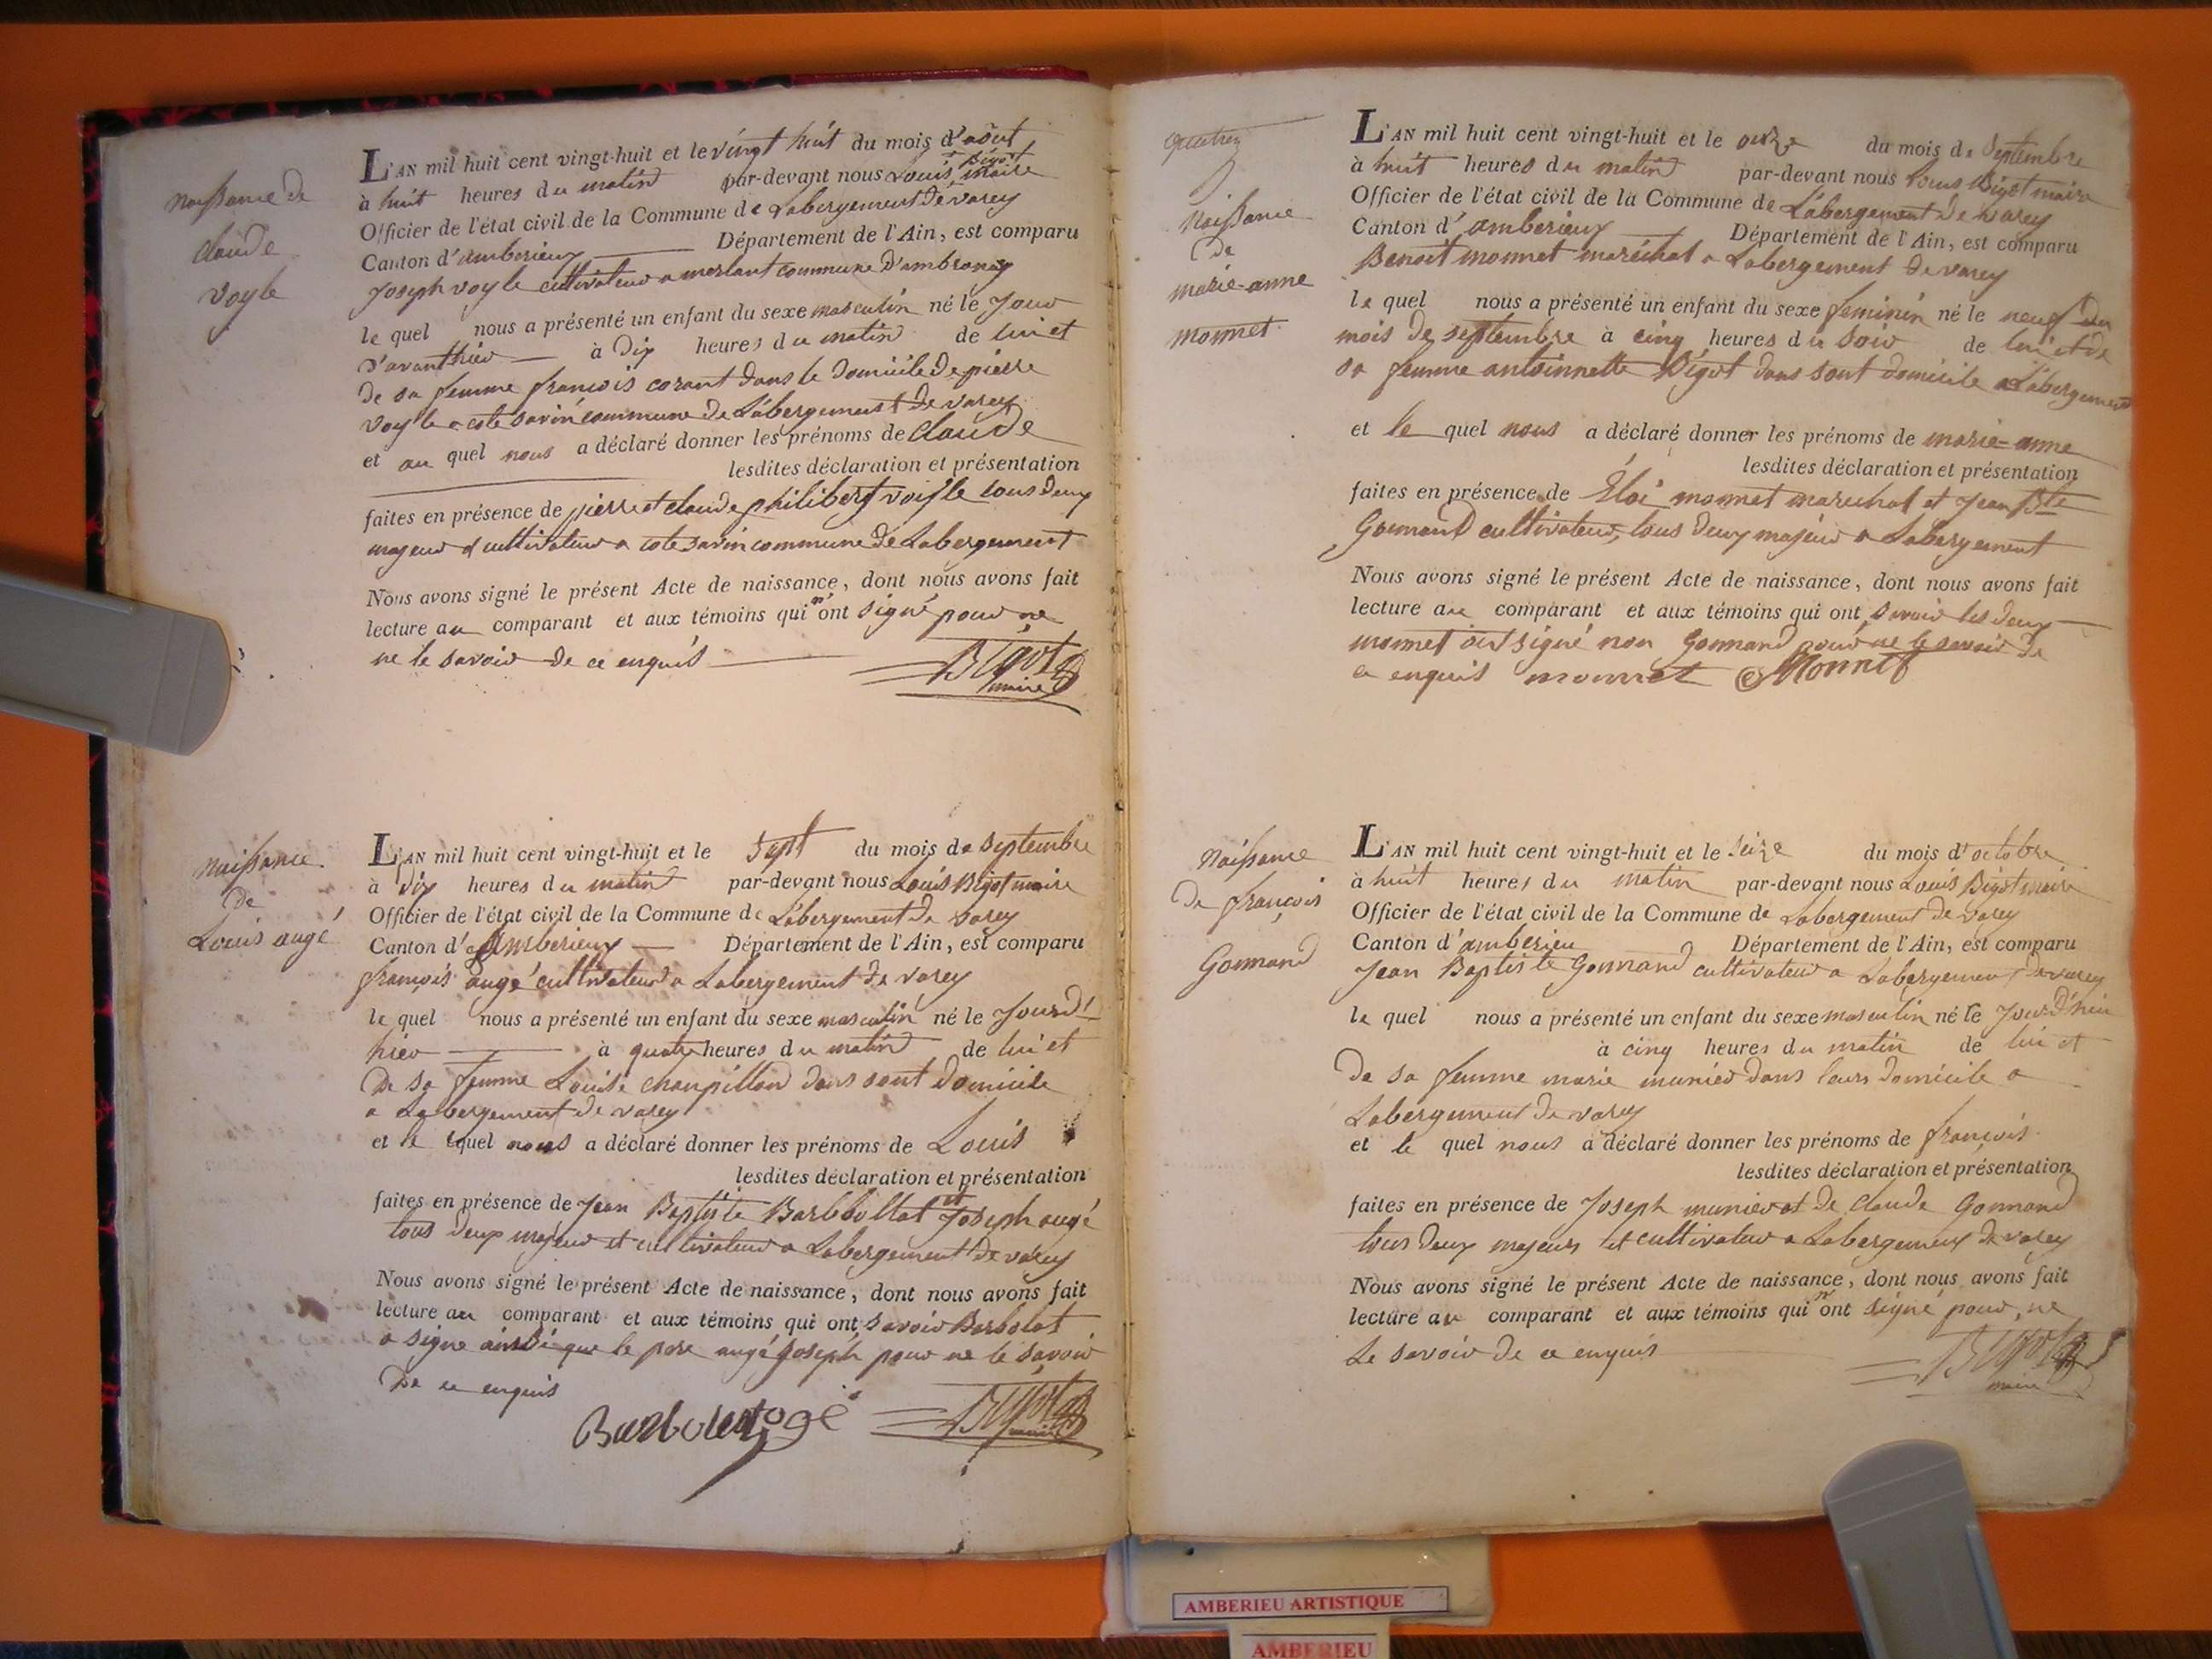 naissance de
claude
voyle
L'AN mil huit cent vingt-huit et le vingt huit du mois d'août
à huit heures du matin par-devant nous Louis Bigot maire
Officier de l'état civil de la Commune de Labergement de varey
Canton d'amberieux Département de l'Ain, est comparu
Joseph voyle cultivateur a merlant commune d'ambronay
le quel nous a présenté un enfant du sexe masculin né le Jour
d'avanthier à dix heures du matin de lui et
de sa femme francois corant dans le domicile de pierre
voyle a cote savin commune de Labergement de varey
et au quel nous a déclaré donner les prénoms de claude
lesdites déclaration et présentation
faites en présence de pierre et claude philibert voifle tous deux
majeur et cultivateur a cote savin commune de Labergement
Nous avons signé le présent Acte de naissance, dont nous avons fait
lecture au comparant et aux témoins qui n'ont signé pour ne
ne le savoir de ce enquis
Bigot
maire
naissance
de
Louis augé
L'AN mil huit cent vingt-huit et le sept du mois de septembre
à dix heures du matin par-devant nous Louis Bigot maire
Officier de l'état civil de la Commune de Labergement de varey
Canton d'amberieux Département de l'Ain, est comparu
françois augé cultivateur a Labergement de varey
le quel nous a présenté un enfant du sexe masculin né le Jour d'
hier à quatre heures du matin de lui et
de sa femme Louise chanpillon dans sont domicile
a Labergement de varey
et le quel nous a déclaré donner les prénoms de Louis
lesdites déclaration et présentation
faites en présence de Jean Baptiste Barbbollat et Joseph augé
tous deux majeur et cultivateur a Labergement de varey
Nous avons signé le présent Acte de naissance, dont nous avons fait
lecture au comparant et aux témoins qui ont savoir Barbolat
a signe ainsi que le pere augé Joseph pour ne le savoir
de ce enquis
Barbolat ogé Bigot
maire
naissance
de
marie-anne
monnet
L'AN mil huit cent vingt-huit et le onze du mois de septembre
à huit heures du matin par-devant nous Louis Bigot maire
Officier de l'état civil de la Commune de Labergement de varey
Canton d'amberieux Département de l'Ain, est comparu
Benoit monnet maréchal a Labergement de varey
le quel nous a présenté un enfant du sexe feminin né le neuf du
mois de septembre à cinq heures du soir de lui et de
sa femme antoinnette Bigot dans sont domicile a Labergement
et le quel nous a déclaré donner les prénoms de marie-anne
lesdites déclaration et présentation
faites en présence de Éloi monnet marechal et Jean Bte
Gonnand cultivateur, tous deux majeur a Labergement
Nous avons signé le présent Acte de naissance, dont nous avons fait
lecture au comparant et aux témoins qui ont savoir les deux
monnet ont signé non Gonnand pour ne le savoir de
ce enquis monnet Monnet
naissance
de françois
Gonnand
L'AN mil huit cent vingt-huit et le seize du mois d'octobre
à huit heures du matin par-devant nous Louis Bigot maire
Officier de l'état civil de la Commune de Labergement de varey
Canton d'amberieu Département de l'Ain, est comparu
Jean Baptiste Gonnand cultivateur a Labergement de varey
le quel nous a présenté un enfant du sexe masculin né le Jour d'hui
à cinq heures du matin de lui et
de sa femme marie munier dans leurs domicile a
Labergement de varey
et le quel nous a déclaré donner les prénoms de françois
lesdites déclaration et présentation
faites en présence de Joseph munier et de claude Gonnand
tous deux majeurs et cultivateur a Labergement de varey
Nous avons signé le présent Acte de naissance, dont nous avons fait
lecture au comparant et aux témoins qui n'ont signé pour ne
le savoir de ce enquis
Bigot
maire
AMBERIEU ARTISTIQUE
AMBERIEU